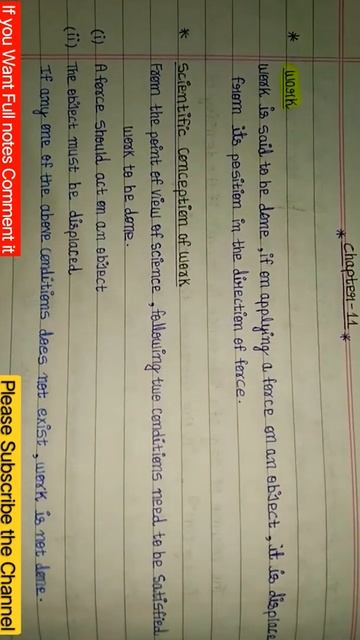 * Chapter-11 *
* Work
Work is said to be done, if on applying a force on an object, it is displace
from its position in the direction of force.
* Scientific Conception of Work
From the point of view of science, following two conditions need to be satisfied
work to be done.
(i) A force should act on an object
(ii) The object must be displaced
If any one of the above conditions does not exist, work is not done.
If you Want Full notes Comment it
Please Subscribe the Channel